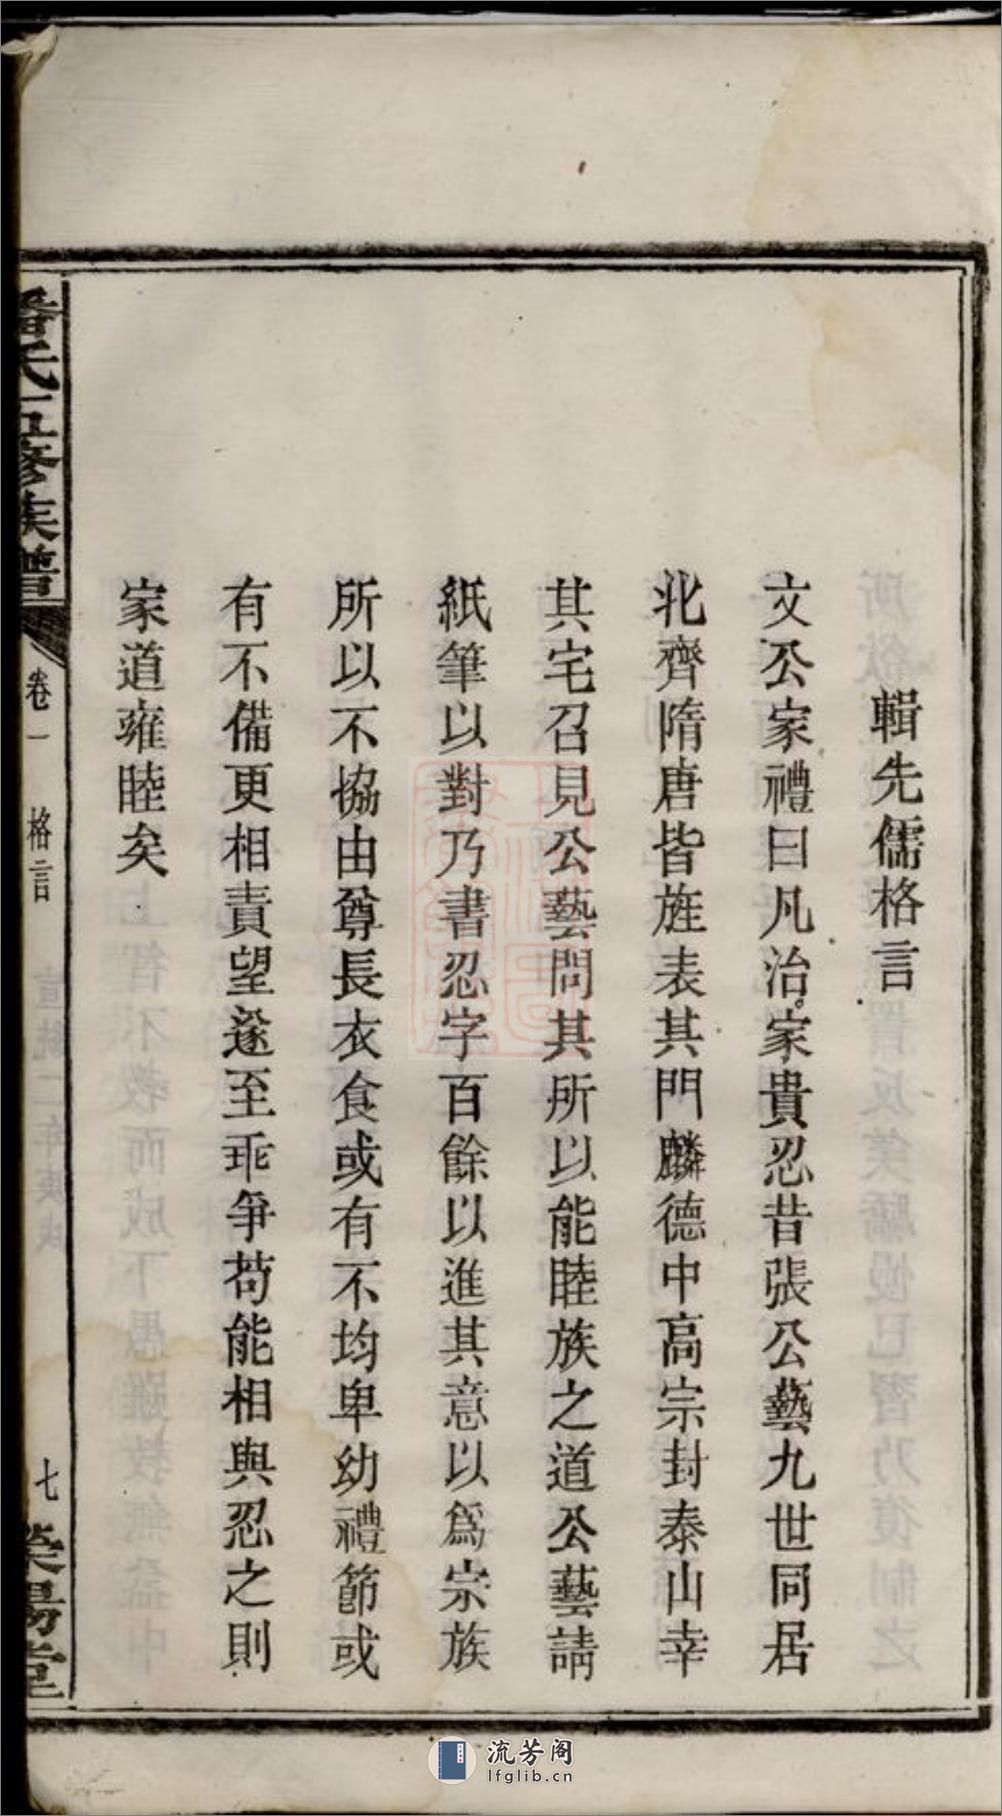 輯先儒格言
文公家禮曰凡治家貴忍昔張公藝九世同居
北齊隋唐皆旌表其門麟德中高宗封泰山幸
其宅召見公藝問其所以能睦族之道公藝請
紙筆以對乃書忍字百餘以進其意以爲宗族
所以不協由尊長衣食或有不均卑幼禮節或
有不備更相責望遂至乖爭苟能相與忍之則
家道雍睦矣
潘氏五修族譜
卷一 格言
七
榮陽堂
流芳阁
lfglib.cn